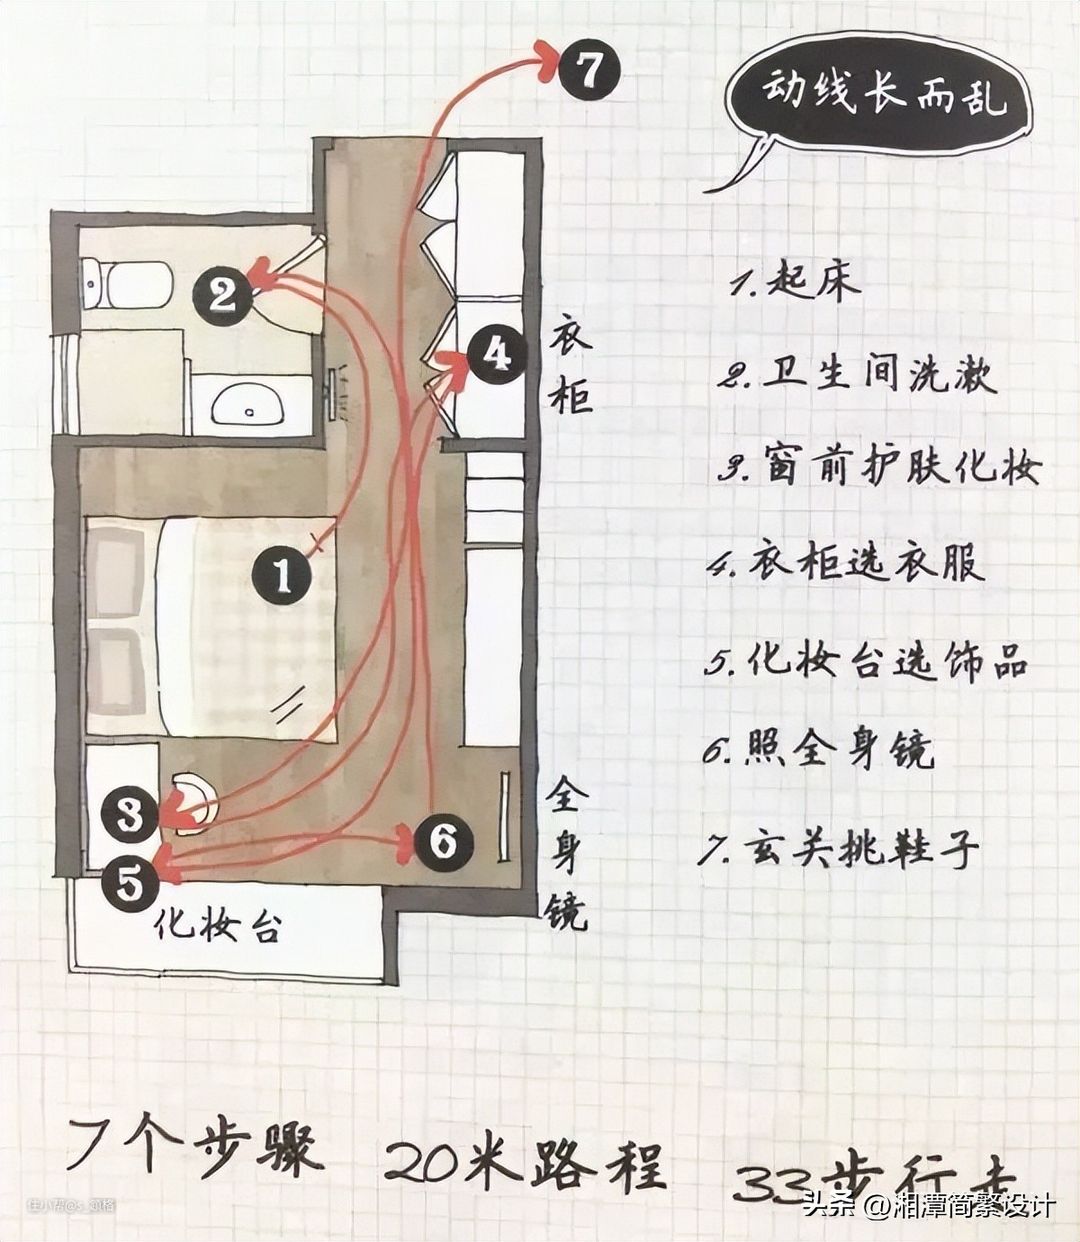 7
动线长而乱
1.起床
2
衣柜
4
2.卫生间洗漱
3.窗前护肤化妆
1
4.衣柜选衣服
5.化妆台选饰品
6.照全身镜
全身镜
3
6
5
7.玄关挑鞋子
化妆台
7个步骤 20米路程 33步行走
住小帮@s_简格
头条 @湘潭简繁设计